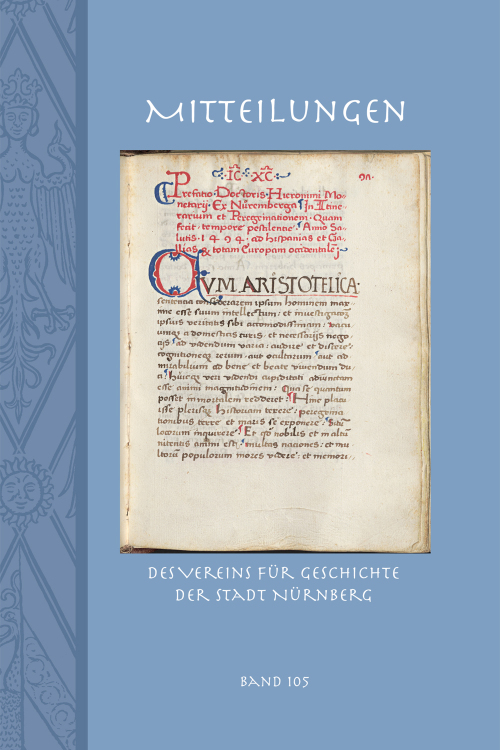 MITTEILUNGEN
·IC̄· XC̄·
91.
Prefatio · Doctoris · Hieronimi Mo-
netarij · Ex Nüremberga · In Itine-
rarium et Peregrinationem · Quam
fecit · tempore pestilentie · Anno Sa-
lutis · 1494 · ad hispanias et Ga-
llias & totam Europam occidentalē
CVM ARISTOTELICA·
sentencia considerarem ipsum hominem maxi-
me esse suum intellectum : et investigacionē
ipsius veritatis sibi accomodissimam : vacu-
umqz a domesticis curis · et necessarijs nego-
cijs · ad videndum varia · audire et discere ·
cognitionemqz rerum · aut ocultarum · aut ad
mirabilium ad bene et beate vivendum du-
ci · huicqz veri videndi cupiditati adiunctam
esse animi magnitudinem : Qua se quantum
posset immortalem redderet : Hinc placu
isse plerisqz historiam texere : peregrina
tionibus terre et maris se exponere : Situm
locorum inquirere : Et qd nobilis et in altū
nitentis animi esset : multas naciones : et mu-
ltorū populorum mores videre : et memori-
DES VEREINS FÜR GESCHICHTE
DER STADT NÜRNBERG
BAND 105